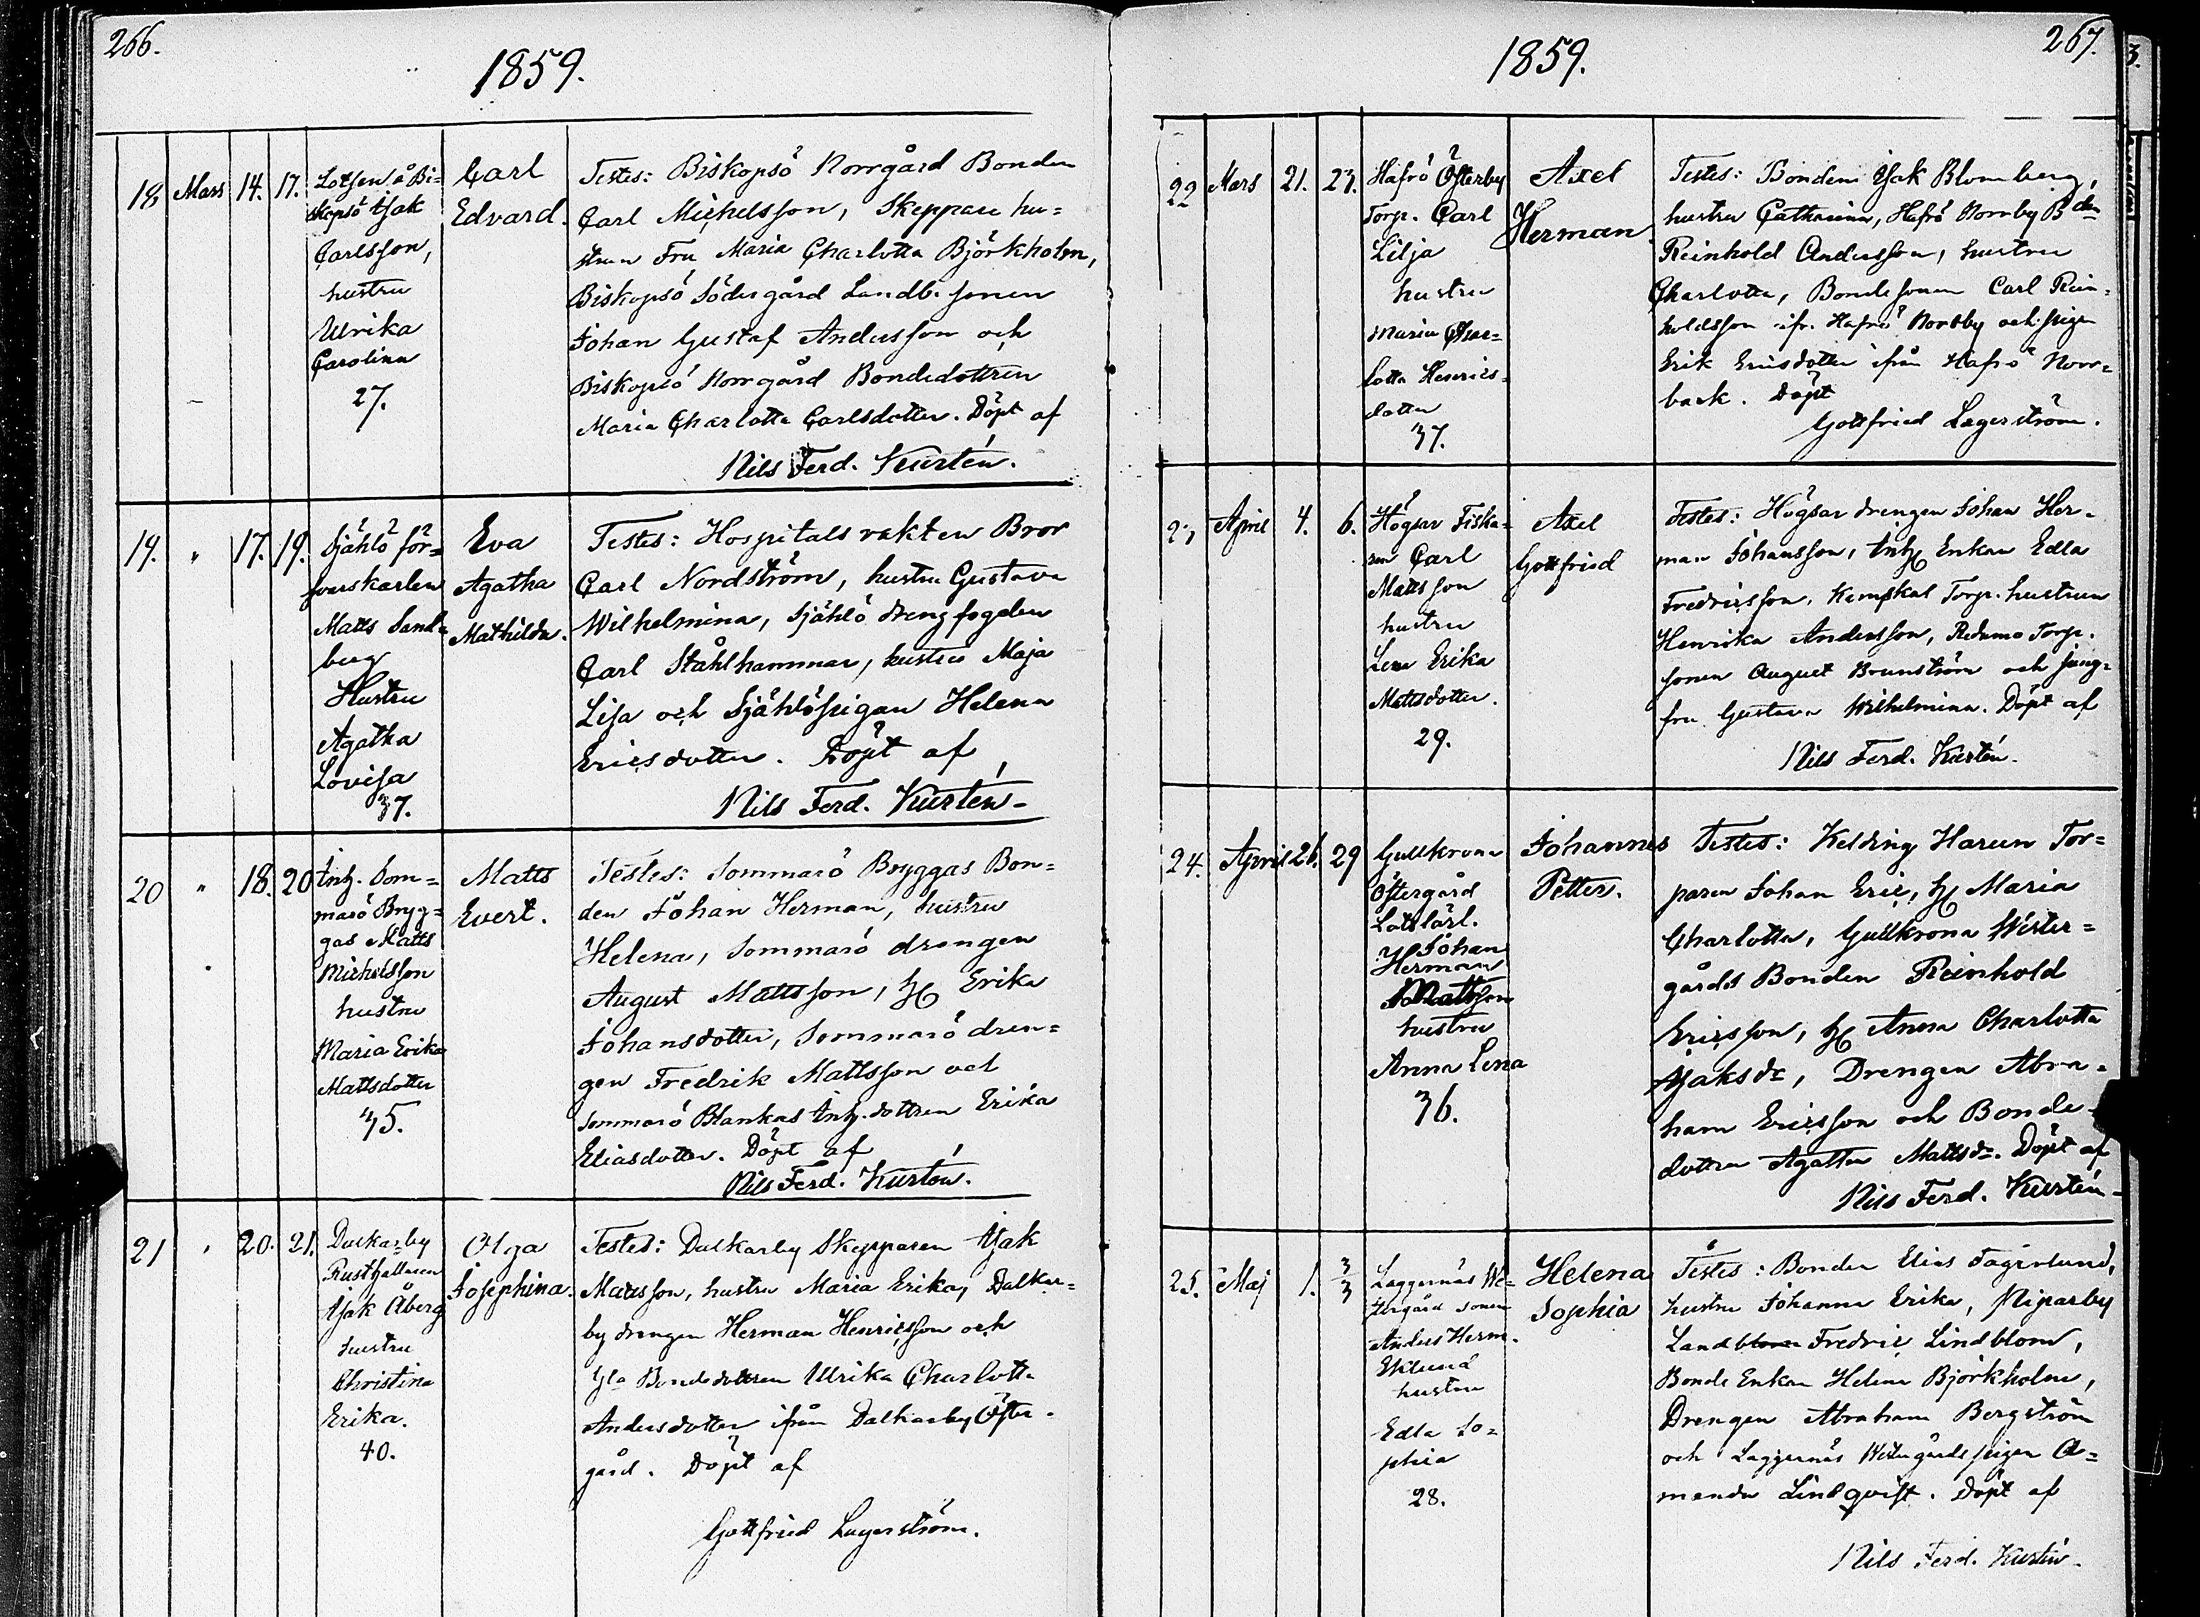 266.
1859.
18 Mars 14. 17.
Lotsen å Bi=
skopsö Isak
Carlsson,
hustru
Ulrika
Carolina
27.
Carl
Edvard.
Testes: Biskopsö Norrgård Bonden
Carl Michelsson, Skeppare hu=
strun Fru Maria Charlotta Björkholm,
Biskopsö Södergård Landb. sonen
Johan Gustaf Andersson och
Biskopsö Norrgård Bondedottren
Maria Charlotta Carlsdotter. Döpt af
Nils Ferd. Kurtén.
19. " 17. 19.
Själö för=
svarskarlen
Matts Sand=
berg
Hustru
Agatha
Lovisa
37.
Eva
Agatha
Mathilda.
Testes: Hospitals vakten Bror
Carl Nordström, hustru Gustava
Wilhelmina, Själö drengfogden
Carl Stålhammar, hustru Maja
Lisa och Själöpigan Helena
Ericsdotter. Döpt af
Nils Ferd. Kurtén.
20 " 18. 20
Inh. Som=
marö Bryg=
gas Matts
Michelsson
hustru
Maria Erika
Mattsdotter
35.
Matts
Evert.
Testes: Sommarö Bryggas Bon=
den Johan Herman, hustru
Helena, Sommarö drengen
August Mattsson, h. Erika
Johansdotter, Sommarö dren=
gen Fredrik Mattsson och
Sommarö Blankas Inh. dottren Erika
Eliasdotter. Döpt af
Nils Ferd. Kurtén.
21 " 20. 21.
Dalkarby
Rusthållaren
Isak Åberg
hustru
Christina
Erika.
40.
Olga
Josephina.
Testes: Dalkarby Skepparen Isak
Mattsson, hustru Maria Erika, Dalkar=
by drengen Herman Henricsson och
Bondedottren Ulrika Charlotta
Andersdotter ifrån Dalkarby Öster=
gård. Döpt af
Gottfried Lagerström.
1859.
267.
22 Mars 21. 23.
Hafrö Österby
Torp. Carl
Lilja
hustru
Maria Char=
lotta Henrics=
dotter
37.
Axel
Herman.
Testes: Bonden Isak Blomberg,
hustru Catharina, Hafrö Norrby Bden
Reinhold Andersson, hustru
Charlotta, Bondesonen Carl Rein=
holdsson ifr. Hafrö Norrby och pigan
Erik Ericsdotter ifrån Hafrö Norr=
back. Döpt
Gottfried Lagerström.
23 April 4. 6.
Högsar Fiska=
ren Carl
Mattsson
hustru
Lena Erika
Mattsdotter.
29.
Axel
Gottfried
Testes: Högsar drengen Johan Her=
man Johansson, Inh. Enkan Edla
Fredricsson, Torp. hustrun
Henrika Andersson, Torp.
sonen August Brunström och Jung=
fru Gustava Wilhelmina. Döpt af
Nils Ferd. Kurtén.
24. April 26. 29
Gullkrona
Östergård
Lotslärl.
Johan
Herman
Mattsson
hustru
Anna Lena
36.
Johannes
Petter.
Testes: Kelding Harun Tor=
paren Johan Eric, h. Maria
Charlotta, Gullkrona Wester=
gårds Bonden Reinhold
Ericsson, h. Anna Charlotta
Isaksdr, Drengen Abra=
ham Ericsson och Bonde=
dottren Agatha Mattsdr. Döpt af
Nils Ferd. Kurtén.
25. Maj 1. 3/3
Laggarnäs We=
stergård sonen
Anders Herm.
Eklund
hustru
Edla So=
phia
28.
Helena
Sophia
Testes: Bonden Elias Fagerlund,
hustru Johanna Erika, Piparby
Landb Fredric Lindblom,
Bonde Enkan Helena Björkholm,
Drengen Abraham Bergström
och Laggarnäs Westergårds pigan A=
manda Lindqvist. Döpt af
Nils Ferd. Kurtén.